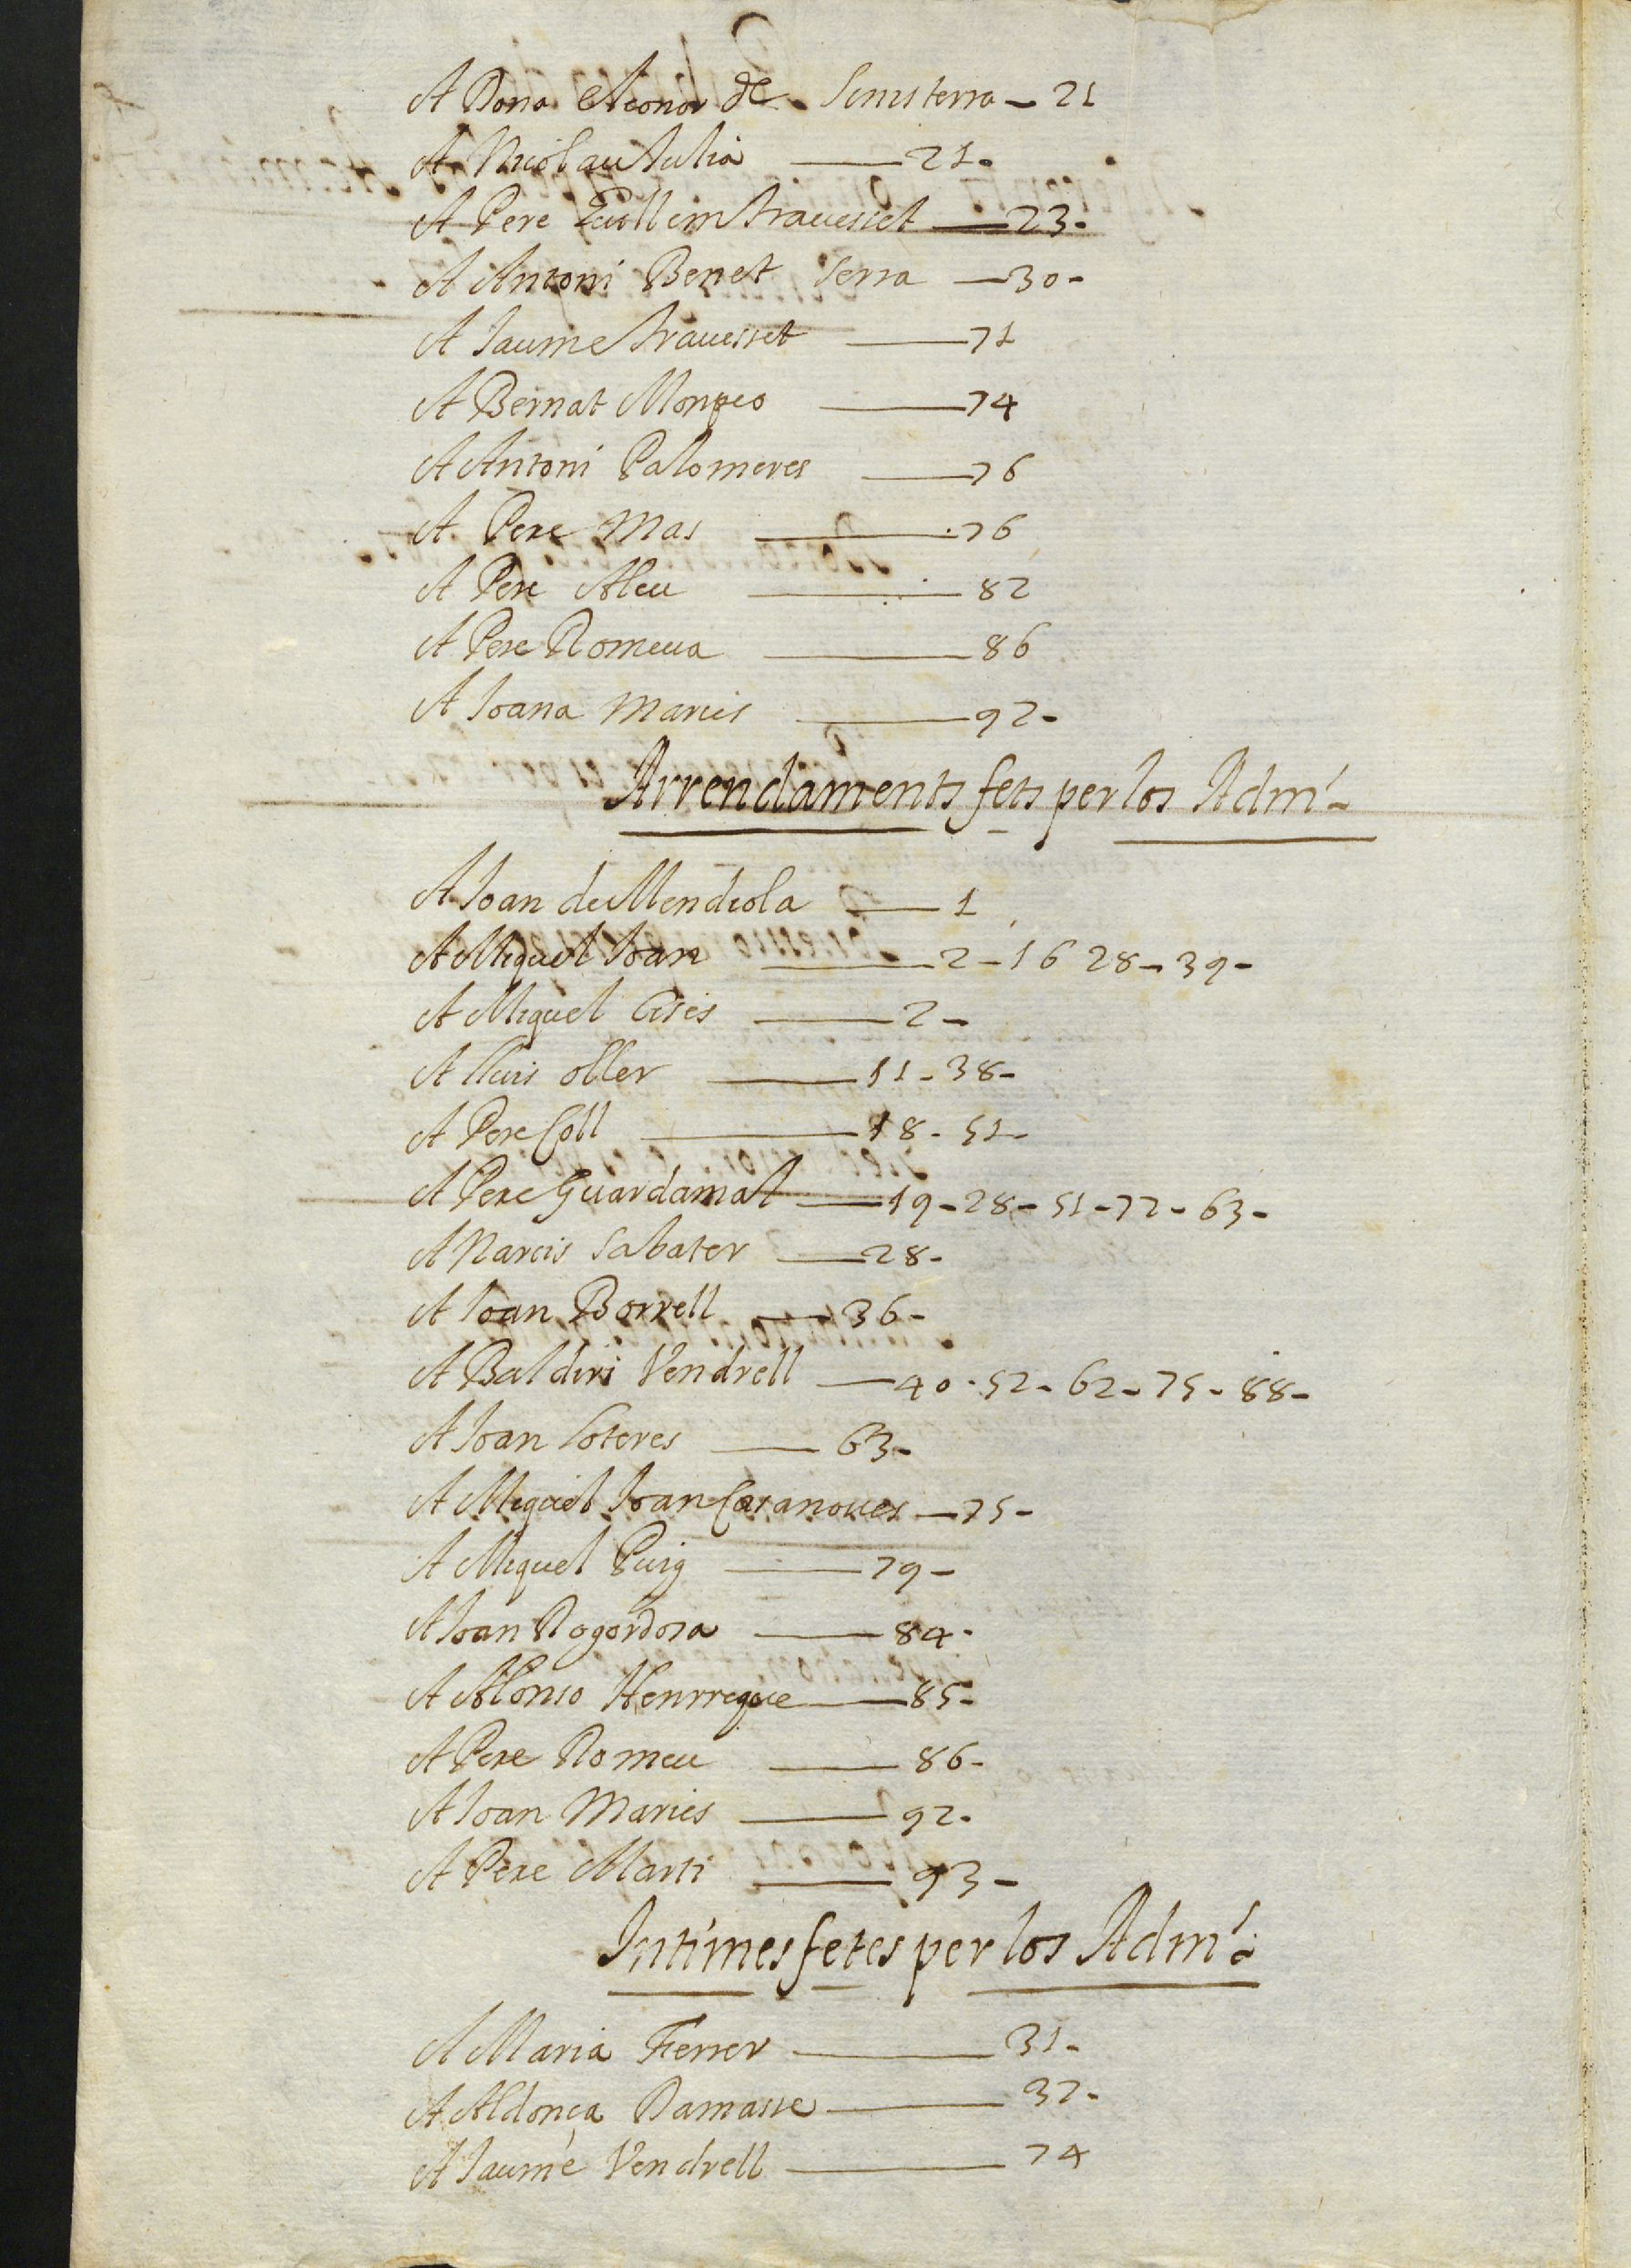 A Dona Aleonor de Sinisterra - 21
A Nicolau Julia — 21-
A Pere Guillem Trauesset — 23-
A Antoni Benet Serra — 30-
A Jaume Trauesset — 71
A Bernat Monpeo — 74
A Antoni Palomeres — 76
A Pere Mas — 76
A Pere Aleu — 82
A Pere Romeua — 86
A Joana Maries — 92-
Arrendaments fets per los Adm.
A Joan de Mendiola — 1
A Miquel Joan — 2-16 28-39-
A Miquel Gisès — 2-
A lluis oller — 11-38-
A Pere Coll — 18-51-
A Pere Guardamal — 19-28-51-72-63-
A Narcis Sabater — 28-
A Joan Borrell — 36-
A Baldiri Vendrell — 40-52-62-75-88-
A Joan Soteres — 63-
A Miquel Joan Casanoues — 75-
A Miquel Puig — 79-
A Joan Rogordosa — 84-
A Alonso Henrreque — 85-
A Pere Romeu — 86-
A Joan Maries — 92-
A Pere Marti — 93-
Intimes fetes per los Adm.
A Maria Ferrer — 31-
A Aldonça Damasse — 32-
A Jaume Vendrell — 74